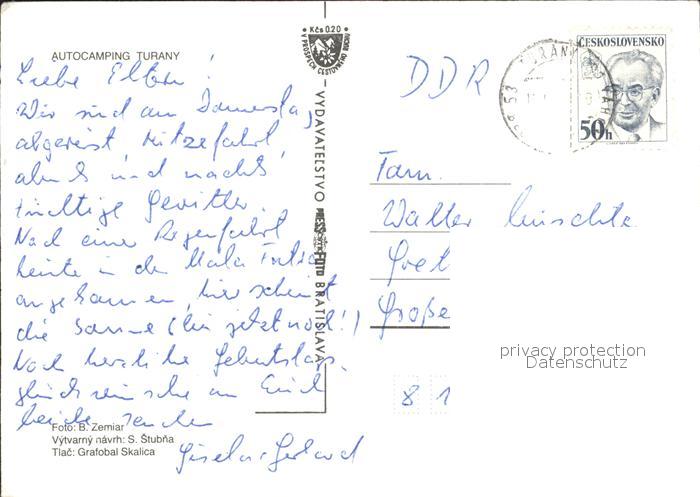 AUTOCAMPING TURANY
Liebe Eltern!
Wir sind am Donnerstag
abgereist, Hitzefahrt,
abends und nachts
tüchtige Gewitter.
Nach einer Regenfahrt
heute in der Mala Fatra
angekommen, hier scheint
die Sonne (bis jetzt noch!)
Noch herzliche Geburtstags-
glückwünsche an Euch
beide senden
Gisela + Gerhard
Foto: B. Zemiar
Výtvarný návrh: S. Štubňa
Tlač: Grafobal Skalica
Kčs 0.20
V PROSPECH CESTOVNÉHO RUCHU
VYDAVATEĽSTVO PRESSFOTO BRATISLAVA
DDR
TURANY
ČESKOSLOVENSKO
50h
Fam.
Walter
Große
privacy protection
Datenschutz
81